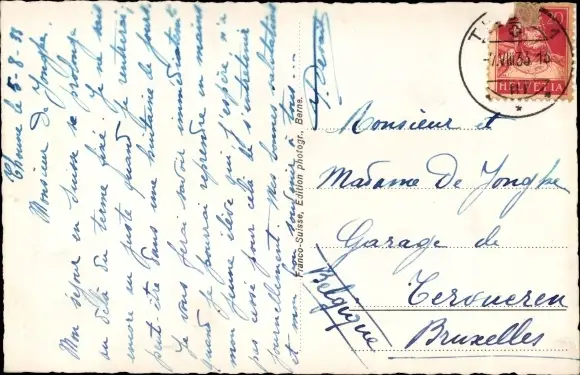 Thoune le 5-8-33
Monsieur De Jonghe,
Mon séjour en Suisse se prolonge
au delà du terme fixé. Je ne sais
encore au juste quand je rentrerai,
peut-être dans une huitaine de jours.
Je vous ferai savoir immédiatement
quand je pourrai reprendre en mains
mon jeune élève qui, j'espère, n'a
pas cessé pour cela de s'entretenir
journellement. Mes bonnes salutations
et mon bon souvenir à tous...
Franco-Suisse, Edition photogr., Berne.
HELVETIA
Monsieur et
Madame De Jonghe
Garage de
Tervueren
Bruxelles
Belgique